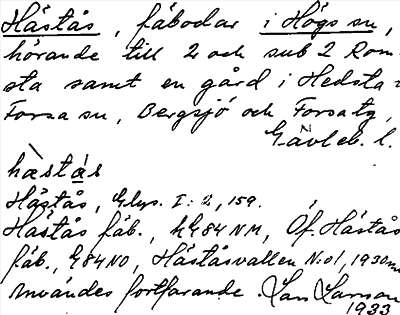 Håstås, fäbodar i Högs sn,
hörande till 2 och sub 2 Rom-
sta samt en gård i Hedsta i
Forsa sn, Bergsjö och Forsa tg,
Gävleb. l.
hàstás
Håstås, Glys. I: 2, 159.
Håstås fäb., hG84 NM, Öf. Håstås
fäb., G84NO, Håståsvallen N:o1, 1930
Användes fortfarande. Lars Larsson
1933